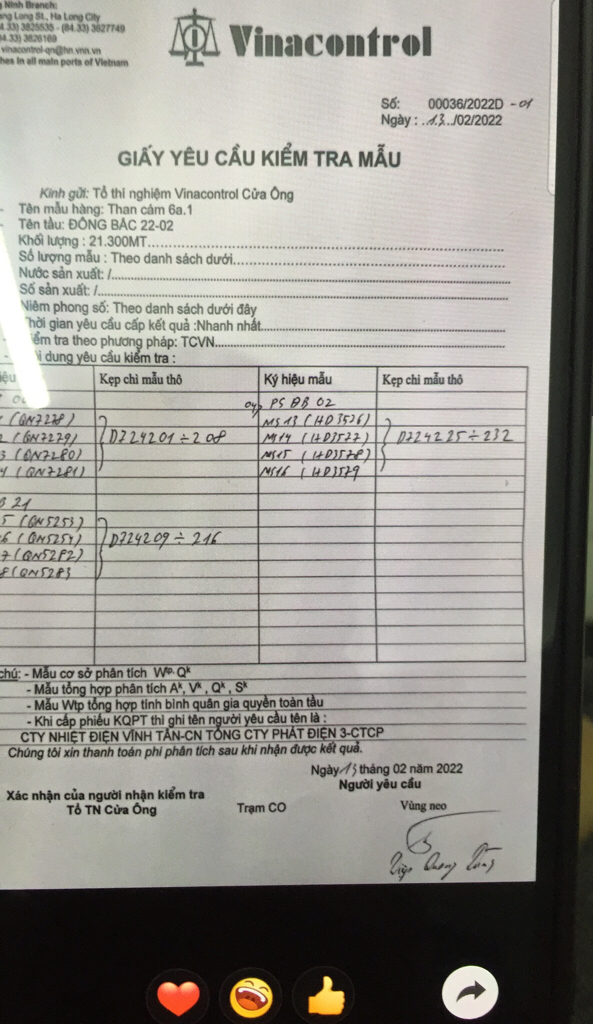 Ninh Branch:
ng Long St., Ha Long City
4.33) 3825535 - (84.33) 3627749
4.33) 3826169
vinacontrol-qn@hn.vnn.vn
hes in all main ports of Vietnam
Vinacontrol
Số: 00036/2022D - 01
Ngày : ..13../02/2022
GIẤY YÊU CẦU KIỂM TRA MẪU
Kính gửi: Tổ thí nghiệm Vinacontrol Cửa Ông
- Tên mẫu hàng: Than cám 6a.1
- Tên tầu: ĐÔNG BẮC 22-02
Khối lượng : 21.300MT
Số lượng mẫu : Theo danh sách dưới
Nước sản xuất: /
Số sản xuất: /
Niêm phong số: Theo danh sách dưới đây
hời gian yêu cầu cấp kết quả :Nhanh nhất
iểm tra theo phương pháp: TCVN
i dung yêu cầu kiểm tra :
iệu Kẹp chì mẫu thô Ký hiệu mẫu Kẹp chì mẫu thô
PS ĐB 02
(QN7278) MS13 (HD3576)
2 (QN7279) D724201 ÷ 208 MS14 (HD3577) D724225 ÷ 232
3 (QN7280) MS15 (HD3578)
4 (QN7281) MS16 (HD3579
B 21
5 (QN5253)
6 (QN5254) D724209 ÷ 216
7 (QN5282)
8 (QN5283
chú: - Mẫu cơ sở phân tích Wtp, Qk
- Mẫu tổng hợp phân tích Ak, Vk , Qk , Sk
- Mẫu Wtp tổng hợp tính bình quân gia quyền toàn tầu
- Khi cấp phiếu KQPT thì ghi tên người yêu cầu tên là :
CTY NHIỆT ĐIỆN VĨNH TÂN-CN TỔNG CTY PHÁT ĐIỆN 3-CTCP
Chúng tôi xin thanh toán phí phân tích sau khi nhận được kết quả.
Ngày 13 tháng 02 năm 2022
Xác nhận của người nhận kiểm tra Người yêu cầu
Tổ TN Cửa Ông Trạm CO Vùng neo